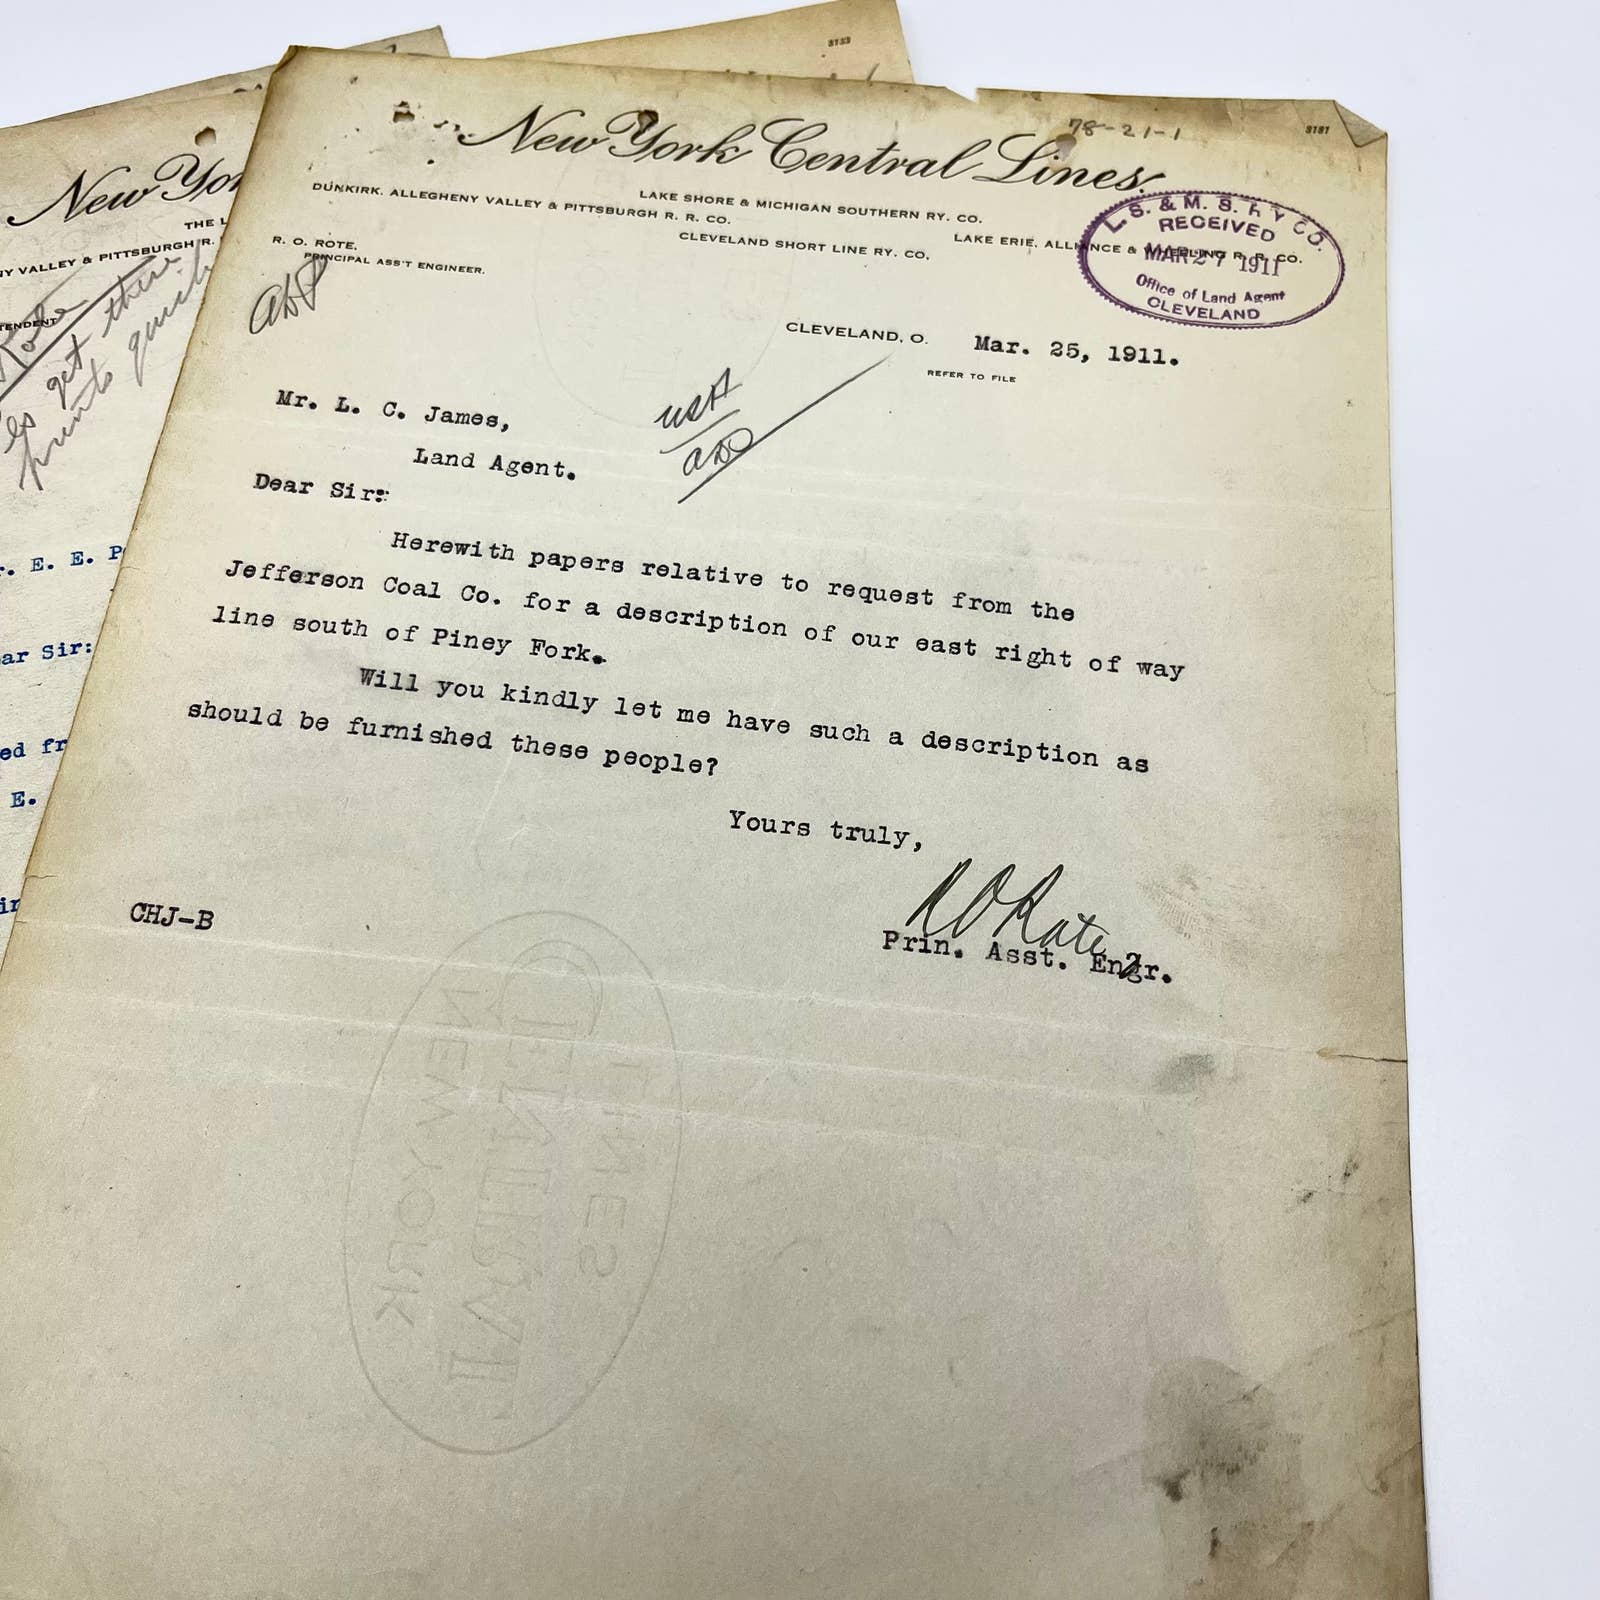 3133
New York Central Lines.
78-21-1
3181
LAKE SHORE & MICHIGAN SOUTHERN RY. CO.
DUNKIRK, ALLEGHENY VALLEY & PITTSBURGH R. R. CO.
LAKE ERIE, ALLIANCE & WHEELING R. R. CO.
CLEVELAND SHORT LINE RY. CO.
R. O. ROTE,
PRINCIPAL ASS'T ENGINEER.
L. S. & M. S. RY CO.
RECEIVED
MAR 27 1911
Office of Land Agent
CLEVELAND
CLEVELAND, O. Mar. 25, 1911.
REFER TO FILE
Mr. L. C. James,
Land Agent.
Dear Sir:
Herewith papers relative to request from the
Jefferson Coal Co. for a description of our east right of way
line south of Piney Fork.
Will you kindly let me have such a description as
should be furnished these people?
Yours truly,
R O Rote
Prin. Asst. Engr.
CHJ-B
NEW YORK
CENTRAL
LINES
New Yor
THE L
NY VALLEY & PITTSBURGH R.
TENDENT
Rote
get three
prints quick
r. E. E. P
ar Sir:
ed fr
E.